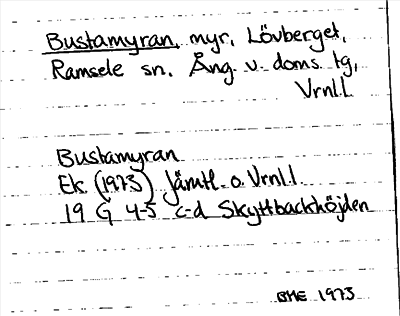 Bustamyran, myr, Lövberget,
Ramsele sn. Ång. v. doms. tg,
Vrnl.l.
Bustamyran
Ek. (1973) Jämtl. o. Vrnl.l
19 G 4-5 c-d Skyttbackhöjden
GME 1973